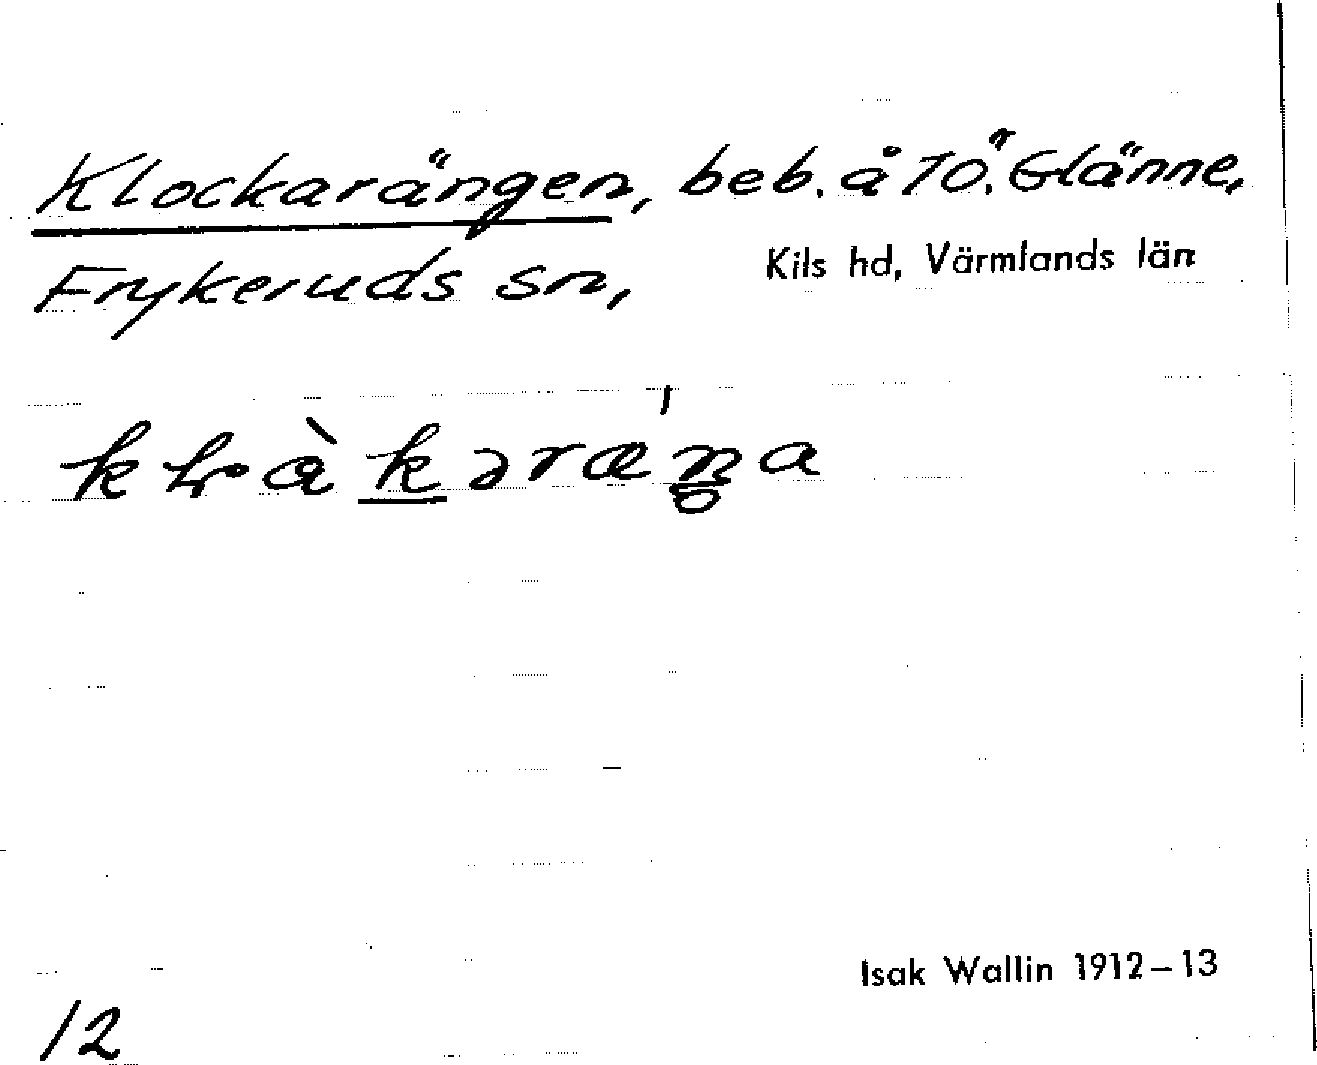 Klockarängen, beb. å 70. Glänne,
Frykeruds sn, Kils hd, Värmlands län
Isak Wallin 1912–13
12